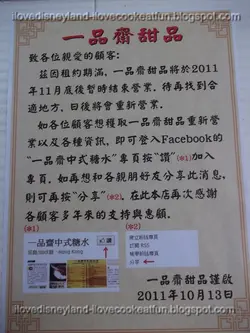 ilovedisneyland-ilovecookeatfun.blogspot.com
一品齋甜品
致各位親愛的顧客:
茲因租約期滿，一品齋甜品將於2011
年11月底後暫時結束營業，待再找到合
適地方，日後將會重新營業。
如各位顧客想獲取一品齋甜品重新營
業以及各種資訊，即可登入Facebook的
“一品齋中式糖水”專頁按“讚”(※1)加入
專頁，如再想和各親朋好友分享此消息，
則可再按“分享”(※2)。在此本店再次感謝
各顧客多年來的支持與惠顧。
(※1)
(※2)
一品齋中式糖水
讚
Hong Kong
分享
一品齋甜品謹啟
2011年10月13日
ilovedisneyland-ilovecookeatfun.blogspot.com